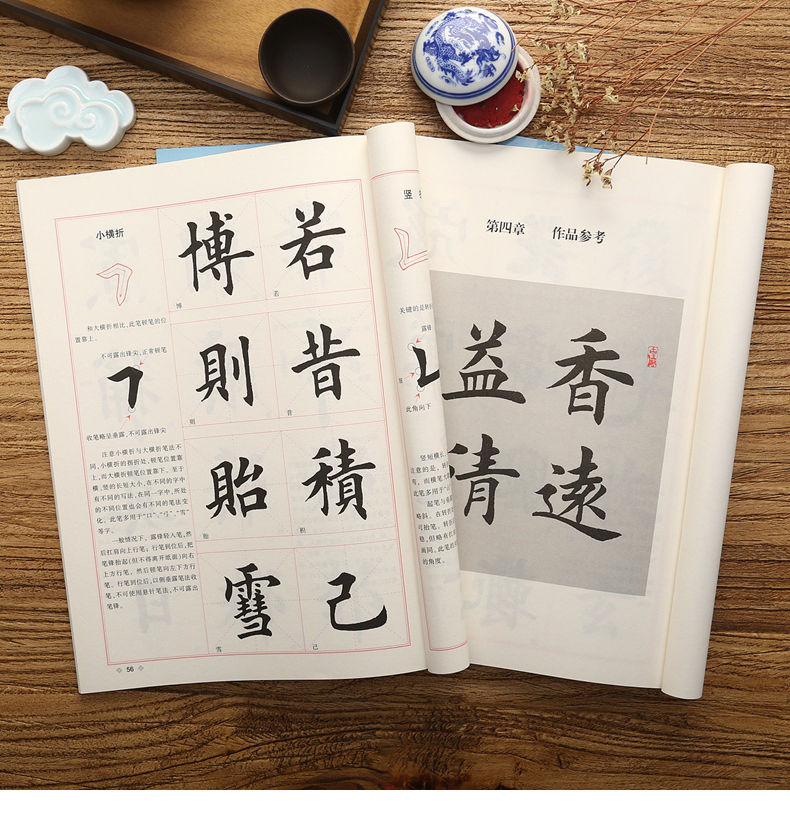 小横折
和大横折相比,此笔顿笔的位
置靠上。
不可露出锋尖,正常顿笔
收笔略呈垂露,不可露出锋尖
注意小横折与大横折笔法不
同,小横折的拐折处,顿笔位置靠
上,而大横折顿笔位置靠下。至于
横、竖的长短大小,在不同的字中
有不同的写法,在同一字中,所处
的不同位置也会有不同的笔法变
化。此笔多用于“口”、“弓”、“雪”
等字。
一般情况下,露锋轻入笔,然
后扛肩向上行笔;行笔到位后,把
笔锋抬起(但不得离开纸面)向右
上方行笔。然后顿笔向左下方行
笔。行笔到位后,以侧垂露笔法收
笔,不可使用悬针笔法,不可露出
笔锋。
博 若
博 若
則 昔
则 昔
貽 積
积
雪 己
雪 己
56
竖
关键的是转
露锋
此角向下
竖短横长,
注意的是,转
弯,而横笔大
此笔多用于
起笔与
略斜。在转
可抬笔。转折
稳,但略有
面同。此笔的
的角度。
第四章 作品参考
香遠
益清